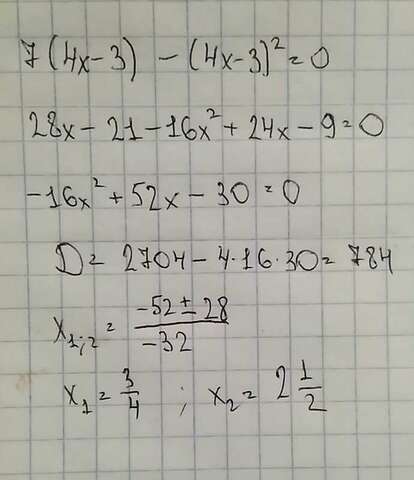 7(4x-3) -(4x-3)²=0
28x-21-16x²+24x-9=0
-16x²+52x-30=0
D= 2704-4·16·30= 784
x₁;₂= (-52±28)/(-32)
x₁= 3/4 ; x₂= 2 1/2